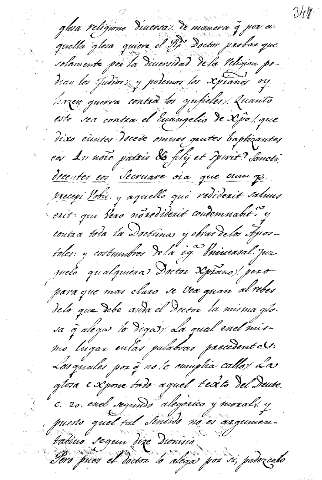 347
glosa religione diversa; de manera q por a
quella glosa quiere el Doctor probar que
solamente por la diversidad de la Religion po
dian los Judios; y podemos los Xpianos oy
hazer guerra contra los ynfieles; Quanto
esto sea contra el Evangelio de Xpo, que
dixo euntes docete omnes gentes baptizantes
eos In noie patris & filij et Spirit. Sancti
docentes eos Servare oia que
precepi Vobis. y aquello qui crediderit salvus
erit. qui vero no crediderit condemnabit.r y
contra toda la Doctrina y obras de los Apos-
toles; y costumbres de la igª Universal. Juz
guelo qualquiera Doctor Xpiano; pero
para que mas claro se vea quan al rebes
delo que debe aiuda el doctor la misma glo
sa q alega lo diga; La qual en el mis-
mo lugar en las palabras precedentes.
Las quales por q no le cumplia callo; La
glosa expone todo aquel texto del Deute.
c. 20. en el segundo alegorico y moral; y
puesto quel tal sentido no es argumen-
tativo segun dize Dionisio
Pero pues el doctor lo alega por si, padezcalo